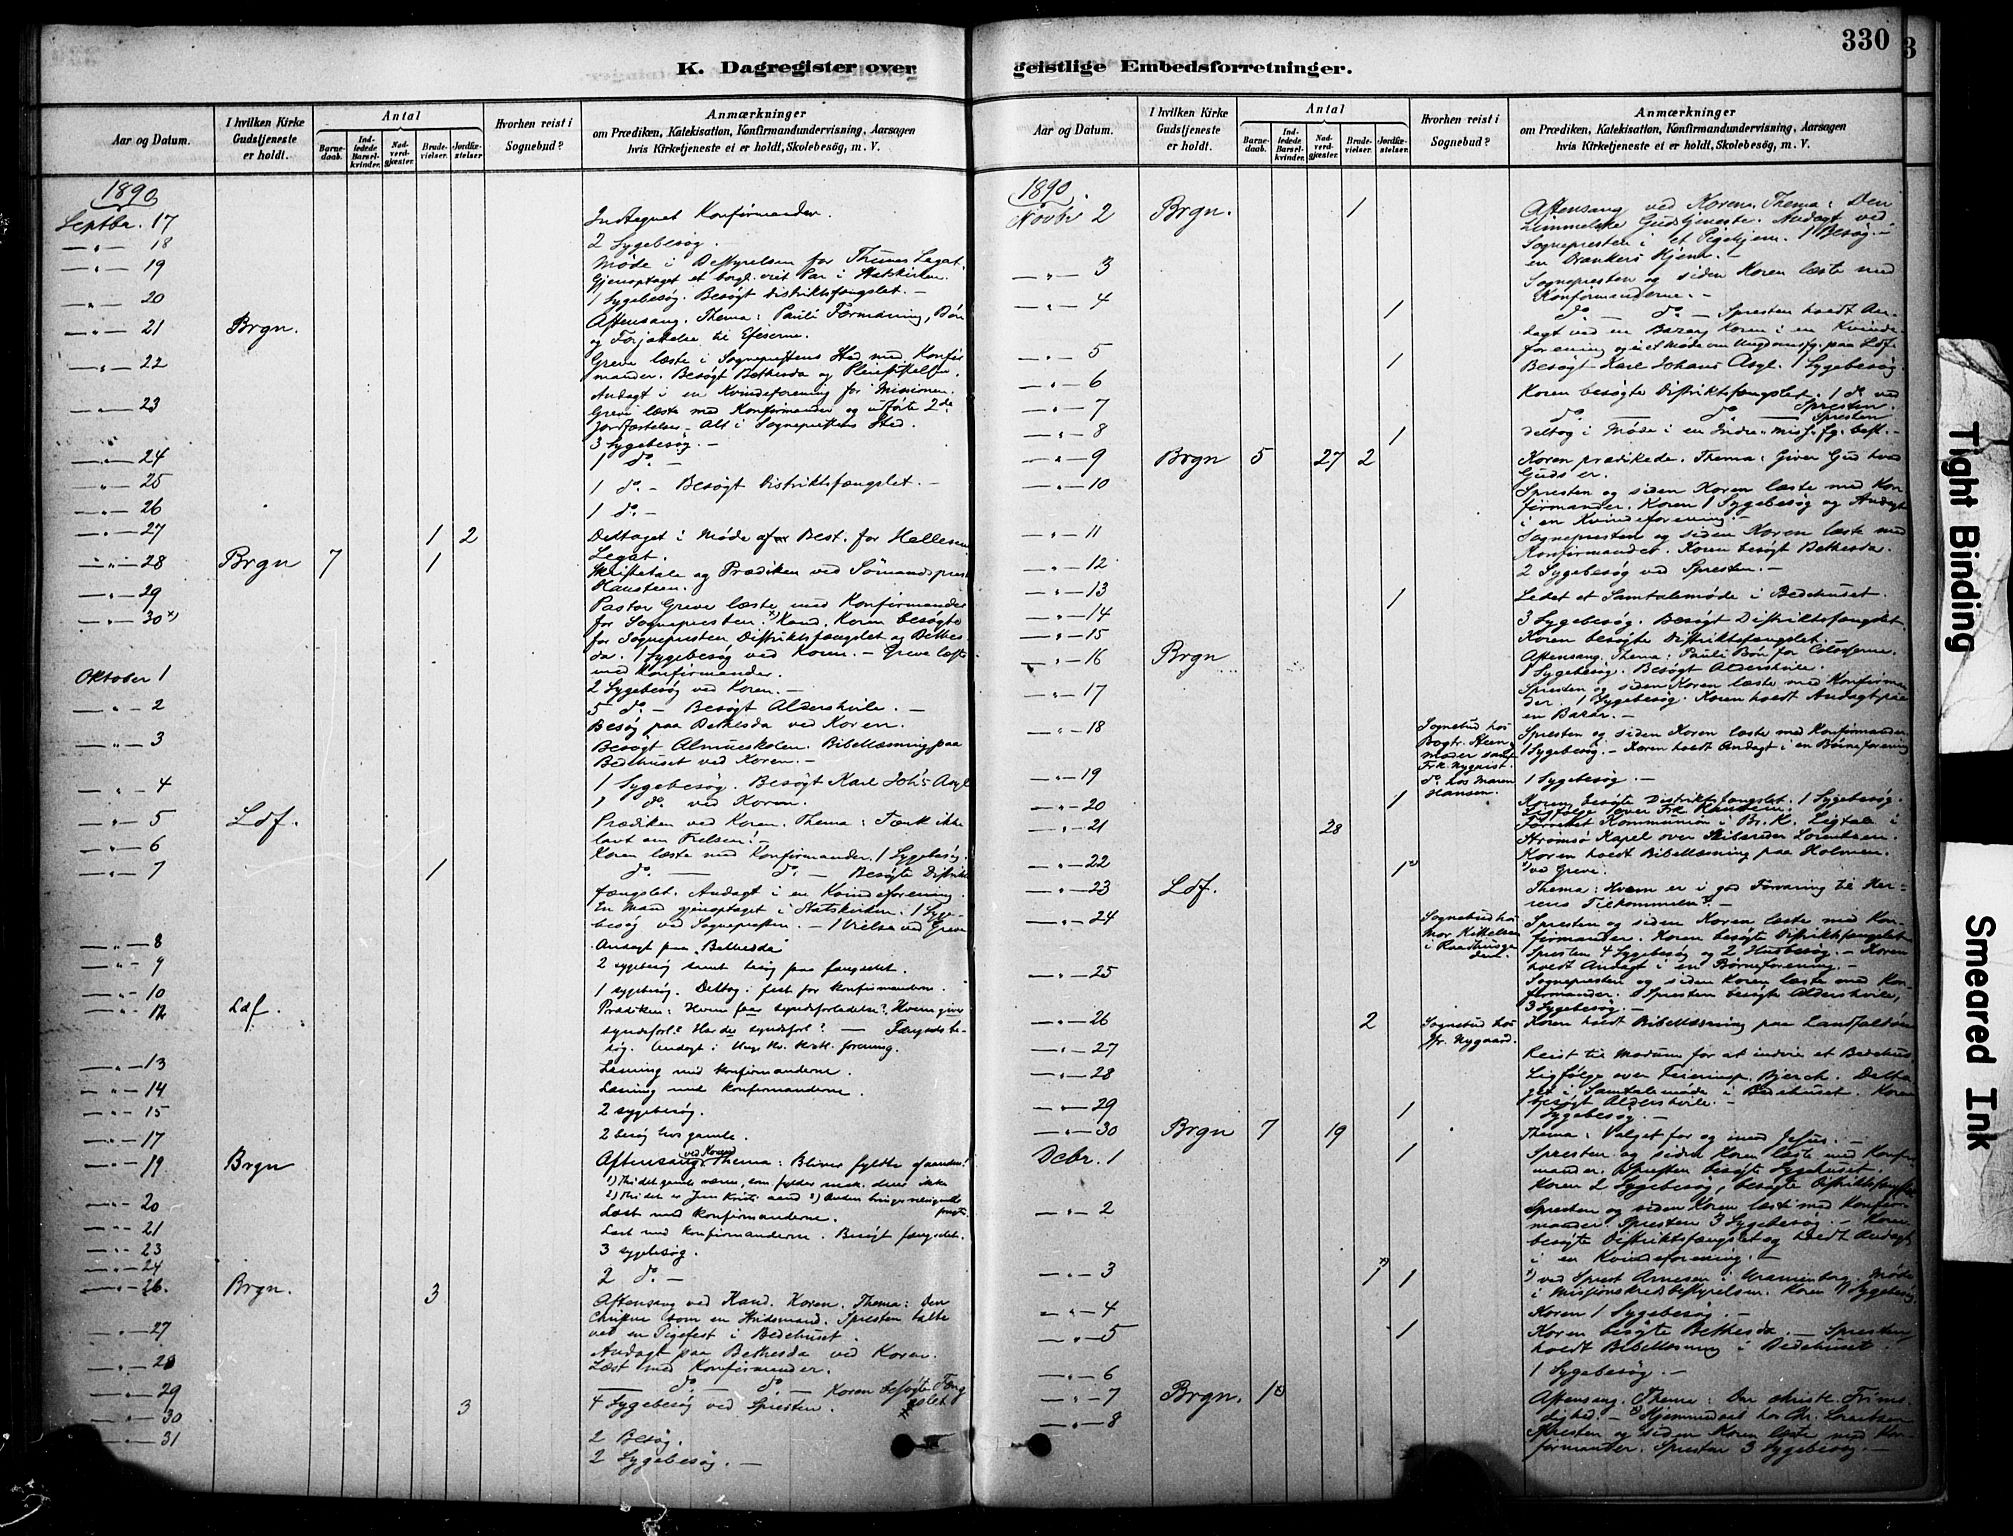 330
K. Dagregister over geistlige Embedsforretninger.
Aar og Datum.
I hvilken Kirke Gudstjeneste er holdt.
Antal
Barnedaab.
Indledede Barselkvinder.
Nadverdgjester.
Brudevielser.
Jordfæstelser.
Hvorhen reist i Sognebud?
Anmærkninger
om Prædiken, Katekisation, Konfirmandundervisning, Aarsagen
hvis Kirketjeneste ei er holdt, Skolebesög, m. V.
1890
Septbr. 17 Indtegnet Konfirmander.
18 2 Sygebesøg.
19 Møde i Bestyrelsen for Thunes Legat.
Gjenoptaget et borgl. viet Par i Statskirken.
20 1 Sygebesøg. Besøgt Distriktsfængslet.
21 Brgn. Aftensang. Thema: Pauli Formaning, Bøn
og Forjættelse til Efeserne.
22 Greve læste i Sogneprestens Sted med Konfir
mander. Besøgt Bethesda og Pleiestiftelsen.
Andagt i en Kvindeforening for Missionen.
23 Greve læste med Konfirmander og udførte 2de
Jordfæstelser. Alt i Sogneprestens Sted.
3 Sygebesøg.
24 1 do.
25 1 do. Besøgt Distriktsfængslet.
26 1 do.
27 1 2 Deltaget i Møde af Best. for Hellesens
Legat.
28 Brgn 7 1 Skriftetale og Prædiken ved Sømandsprest
Hansteen.
29 Pastor Greve læste med Konfirmander
30 x) for Sognepresten. x) Kand. Koren besøgte
for Sognepresten Distriktsfængslet og Bethes-
da. 1 Sygebesøg ved Koren. Greve læste
med Konfirmander.
Oktober 1 2 Sygebesøg ved Koren.
2 5 do. Besøgt Aldershvile.
Besøg paa Bethesda ved Koren.
3 Besøgt Almueskolen. Bibellæsning paa
Bedehuset ved Koren.
4 1 Sygebesøg. Besøgt Karl Joh's Asyl
1 do. ved Koren.
5 Ldf. Prædiken ved Koren. Thema: Tænk ikke
lavt om Frelsen!
6 Koren læste med Konfirmander. 1 Sygebesøg.
7 1 do. do. Besøgte Distrikts
fængslet. Andagt i en Kvindeforening.
En Mand gjenoptaget i Statskirken. 1 Syge-
besøg ved Sognepresten. 1 Vielse ved Greve
8 Andagt paa "Bethesda"
9 2 sygebesøg samt besøg paa fængselet.
10 1 sygebesøg. Deltog i fest for konfirmanderne.
12 Ldf. Prædiken: Hvem faar syndsforladelse? Hvem giver
syndsforl? Har du syndsforl? Fængselsbe-
søg. Andagt i Unge Kv. kristl. forening.
13 Læsning med konfirmanderne.
14 Læsning med konfirmanderne.
15 2 sygebesøg.
17 2 besøg hos gamle.
19 Brgn Aftensang ved Koren Thema: Bliver fyldte af aanden!
20 Læst med konfirmanderne.
21 Læst med konfirmanderne. Besøgt fængselet.
23 3 sygebesøg.
24 2 do.
26. Brgn. 3 Aftensang ved Kand. Koren. Thema: Den
Christne som en Stridsmand. Spresten talte
ved en Pigefest i Bedehuset.
27 Andagt paa Bethesda ved Koren.
28 Læst med Konfirmander.
29 do. do. Koren besøgte Fæng
slet
30 3 4 Sygebesøg ved Spresten.
31 2 Besøg.
2 Sygebesøg.
Aar og Datum.
I hvilken Kirke Gudstjeneste er holdt.
Antal
Barnedaab.
Indledede Barselkvinder.
Nadverdgjester.
Brudevielser.
Jordfæstelser.
Hvorhen reist i Sognebud?
Anmærkninger
om Prædiken, Katekisation, Konfirmandundervisning, Aarsagen
hvis Kirketjeneste ei er holdt, Skolebesög, m. V.
1890
Novbr 2 Brgn. 1 Aftensang ved Koren. Thema: Den
himmelske Gudstjeneste. Andagt ved
Sognepresten i et Pigehjem. 1 Besøg i
en Drankers Hjem.
3 Sognepresten og siden Koren læste med
Konfirmanderne.
4 1 do. do. Spresten holdt An-
dagt ved en Bazar, Koren i en Kvinde-
forening og i et Møde om Ungdomsfg. paa Ldf.
5 1 Besøgt Karl Johans Asyl. 1 Sygebesøg
6 Koren besøgte Distriktsfængslet. 1 do ved
Spresten.
7 do. do. Spresten
8 1 deltog i Møde i en Indre-miss. fg. best.
9 Brgn 5 27 2 Koren prædikede. Thema: Giver Gud hvad
Guds er.
10 Spresten og siden Koren læste med Kon
firmander. Koren 1 Sygebesøg og Andagt
i en Kvindeforening.
11 Sognepresten og siden Koren læste med
Konfirmander. Koren besøgt Bethesda.
12 2 Sygebesøg ved Spresten.
13 1 Ledet et Samtalemøde i Bedehuset.
14 3 Sygebesøg. Besøgt Distriktsfængslet.
15 Koren besøgte Distriktsfængslet.
16 Brgn Aftensang. Thema: Pauli Bøn for Colosserne.
1 Sygebesøg. Besøgt Aldershvile.
17 Spresten og siden Koren læste med Konfirman
der. 1 Sygebesøg. Koren holdt Andagt paa
en Bazar.
18 Sognebud hos
Bogtr. Steens
moder samt
Frk. Nyqvist.
Spresten og siden Koren læste med Konfirmander.
1 Sygebesøg. Koren holdt Andagt i en Børneforening
19 do. hos Maren
Hansen.
1 Sygebesøg.
20 1 Koren besøgte Distriktsfængslet. 1 Sygebesøg.
Ligfølge over Frk Hansteen.
21 28 Forrettet Kommunion i Br. K. Ligtale i
Strømsø Kapel over Skibsreder Lorentzen.
22 1 x) Koren holdt Bibellæsning paa Holmen.
x) ved Greve.
23 Ldf. Thema: Hvem er i god Forvaring til Her-
rens Tilkommelse?
24 Sognebud hos
Mor Kittelsen
i Raadhusga
den.
Spresten og siden Koren læste med Kon-
firmander. Koren besøgte Distriktsfængslet
Spresten 4 Sygebesøg og 2 Husbesøg. Koren
holdt Andagt i en Børneforening.
25 Sognepresten og siden Koren læste med Kon-
firmander. Spresten besøgte Aldershvile,
3 Sygebesøg.
26 2 Sognebud hos
Fr. Nygaard.
Koren holdt Bibellæsning paa Landfaldøen
27 Reist til Modum for at indvie et Bedehus.
28 Ligfølge over Feierinsp. Bjerch. Delta
get i Samtalemøde i Bedehuset. Koren
besøgt Aldershvile.
29 1 1 Sygebesøg.
30 Brgn 7 19 Thema: Valget for og imod Jesus.
Decbr. 1 1 Spresten og siden Koren læste med Konfir-
mander. Spresten besøgte Sygehuset.
Koren 2 Sygebesøg, besøgte Distriktsfængslet
2 Spresten og siden Koren læste med Konfir-
mander. Spresten 3 Sygebesøg. Koren
besøgte Distriktsfængslet og holdt Andagt
i en Kvindeforening.
3 1 x) 1 x) ved Sprest Arnesen i Uranienborg. Møde
i Missionskredsbestyrelsen. Koren 1 Sygebesøg.
4 Koren 1 Sygebesøg.
5 1 Koren besøgte Bethesda. Spresten
holdt Bibellæsning i Bedehuset.
6 1 Sygebesøg.
7 Brgn. 1 x) Aftensang. Thema: Den christl. Frimo-
dighed. x) Hjemmedaab hos Chr. Lorentzen
8 Spresten og siden Koren læste med Kon-
firmander. Spresten 3 Sygebesøg.
Tight Binding
Smeared Ink